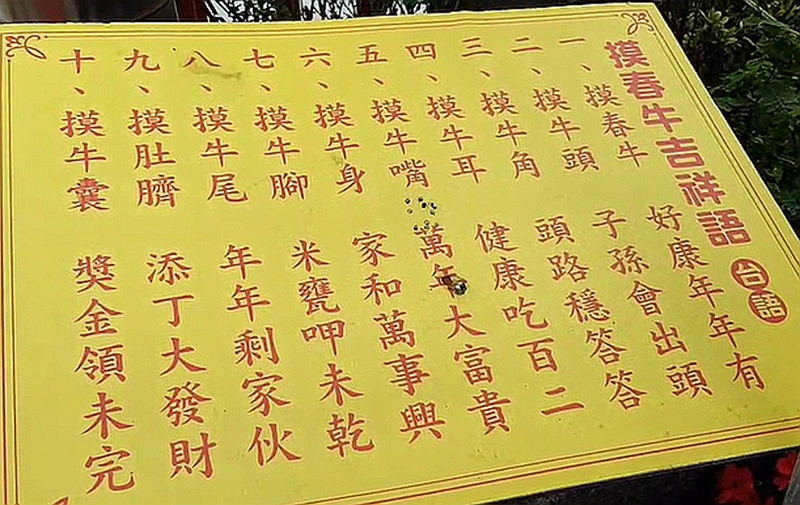 摸春牛吉祥語 台語
一、摸春牛 好康年年有
二、摸牛頭 子孫會出頭
三、摸牛角 頭路穩答答
四、摸牛耳 健康吃百二
五、摸牛嘴 萬年大富貴
六、摸牛身 家和萬事興
七、摸牛腳 米甕呷未乾
八、摸牛尾 年年剩家伙
九、摸肚臍 添丁大發財
十、摸牛囊 獎金領未完